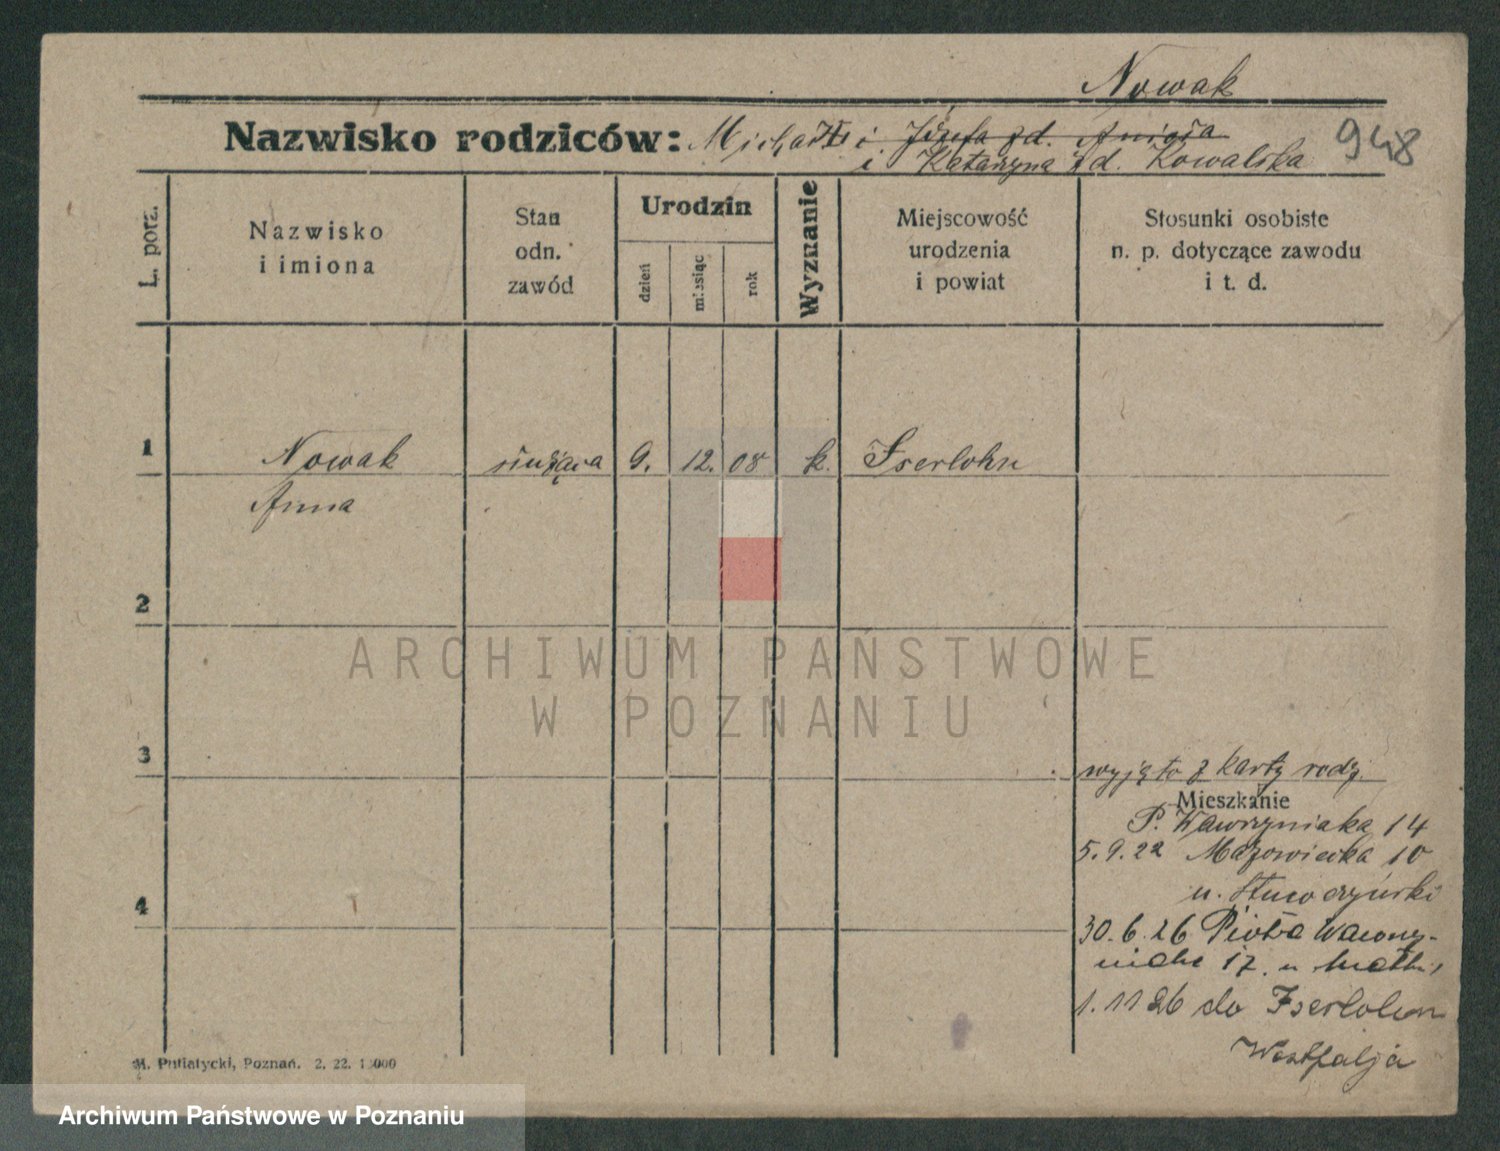 Nowak
Nazwisko rodziców: Michał i Józefa zd. Anioła
i Katarzyna zd. Kowalska
948
L. porz.
Nazwisko i imiona
Stan odn. zawód
Urodzin
dzień
miesiąc
rok
Wyznanie
Miejscowość urodzenia i powiat
Stosunki osobiste n. p. dotyczące zawodu i t. d.
1 Nowak służąca 9. 12. 08 k. Iserlohn
Anna
2
3
wyjęto z karty rodz.
Mieszkanie
P. Wawrzyniaka 14
5.9.22 Mazowiecka 10
4
u.
30.6.26 Piotra Wawrzy-
niaka 17. u matki
1.11 26 do Iserlohn
Westfalja
M. Putiatycki, Poznań. 2. 22. 1 000
ARCHIWUM PAŃSTWOWE
W POZNANIU
Archiwum Państwowe w Poznaniu